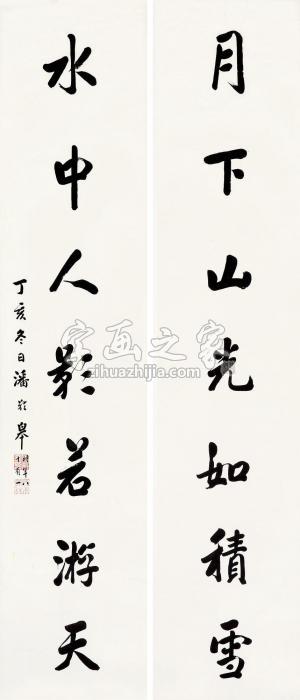 月下山光如積雪
水中人影若游天
丁亥冬日潘齡皋
字画之家
zihuazhijia.com